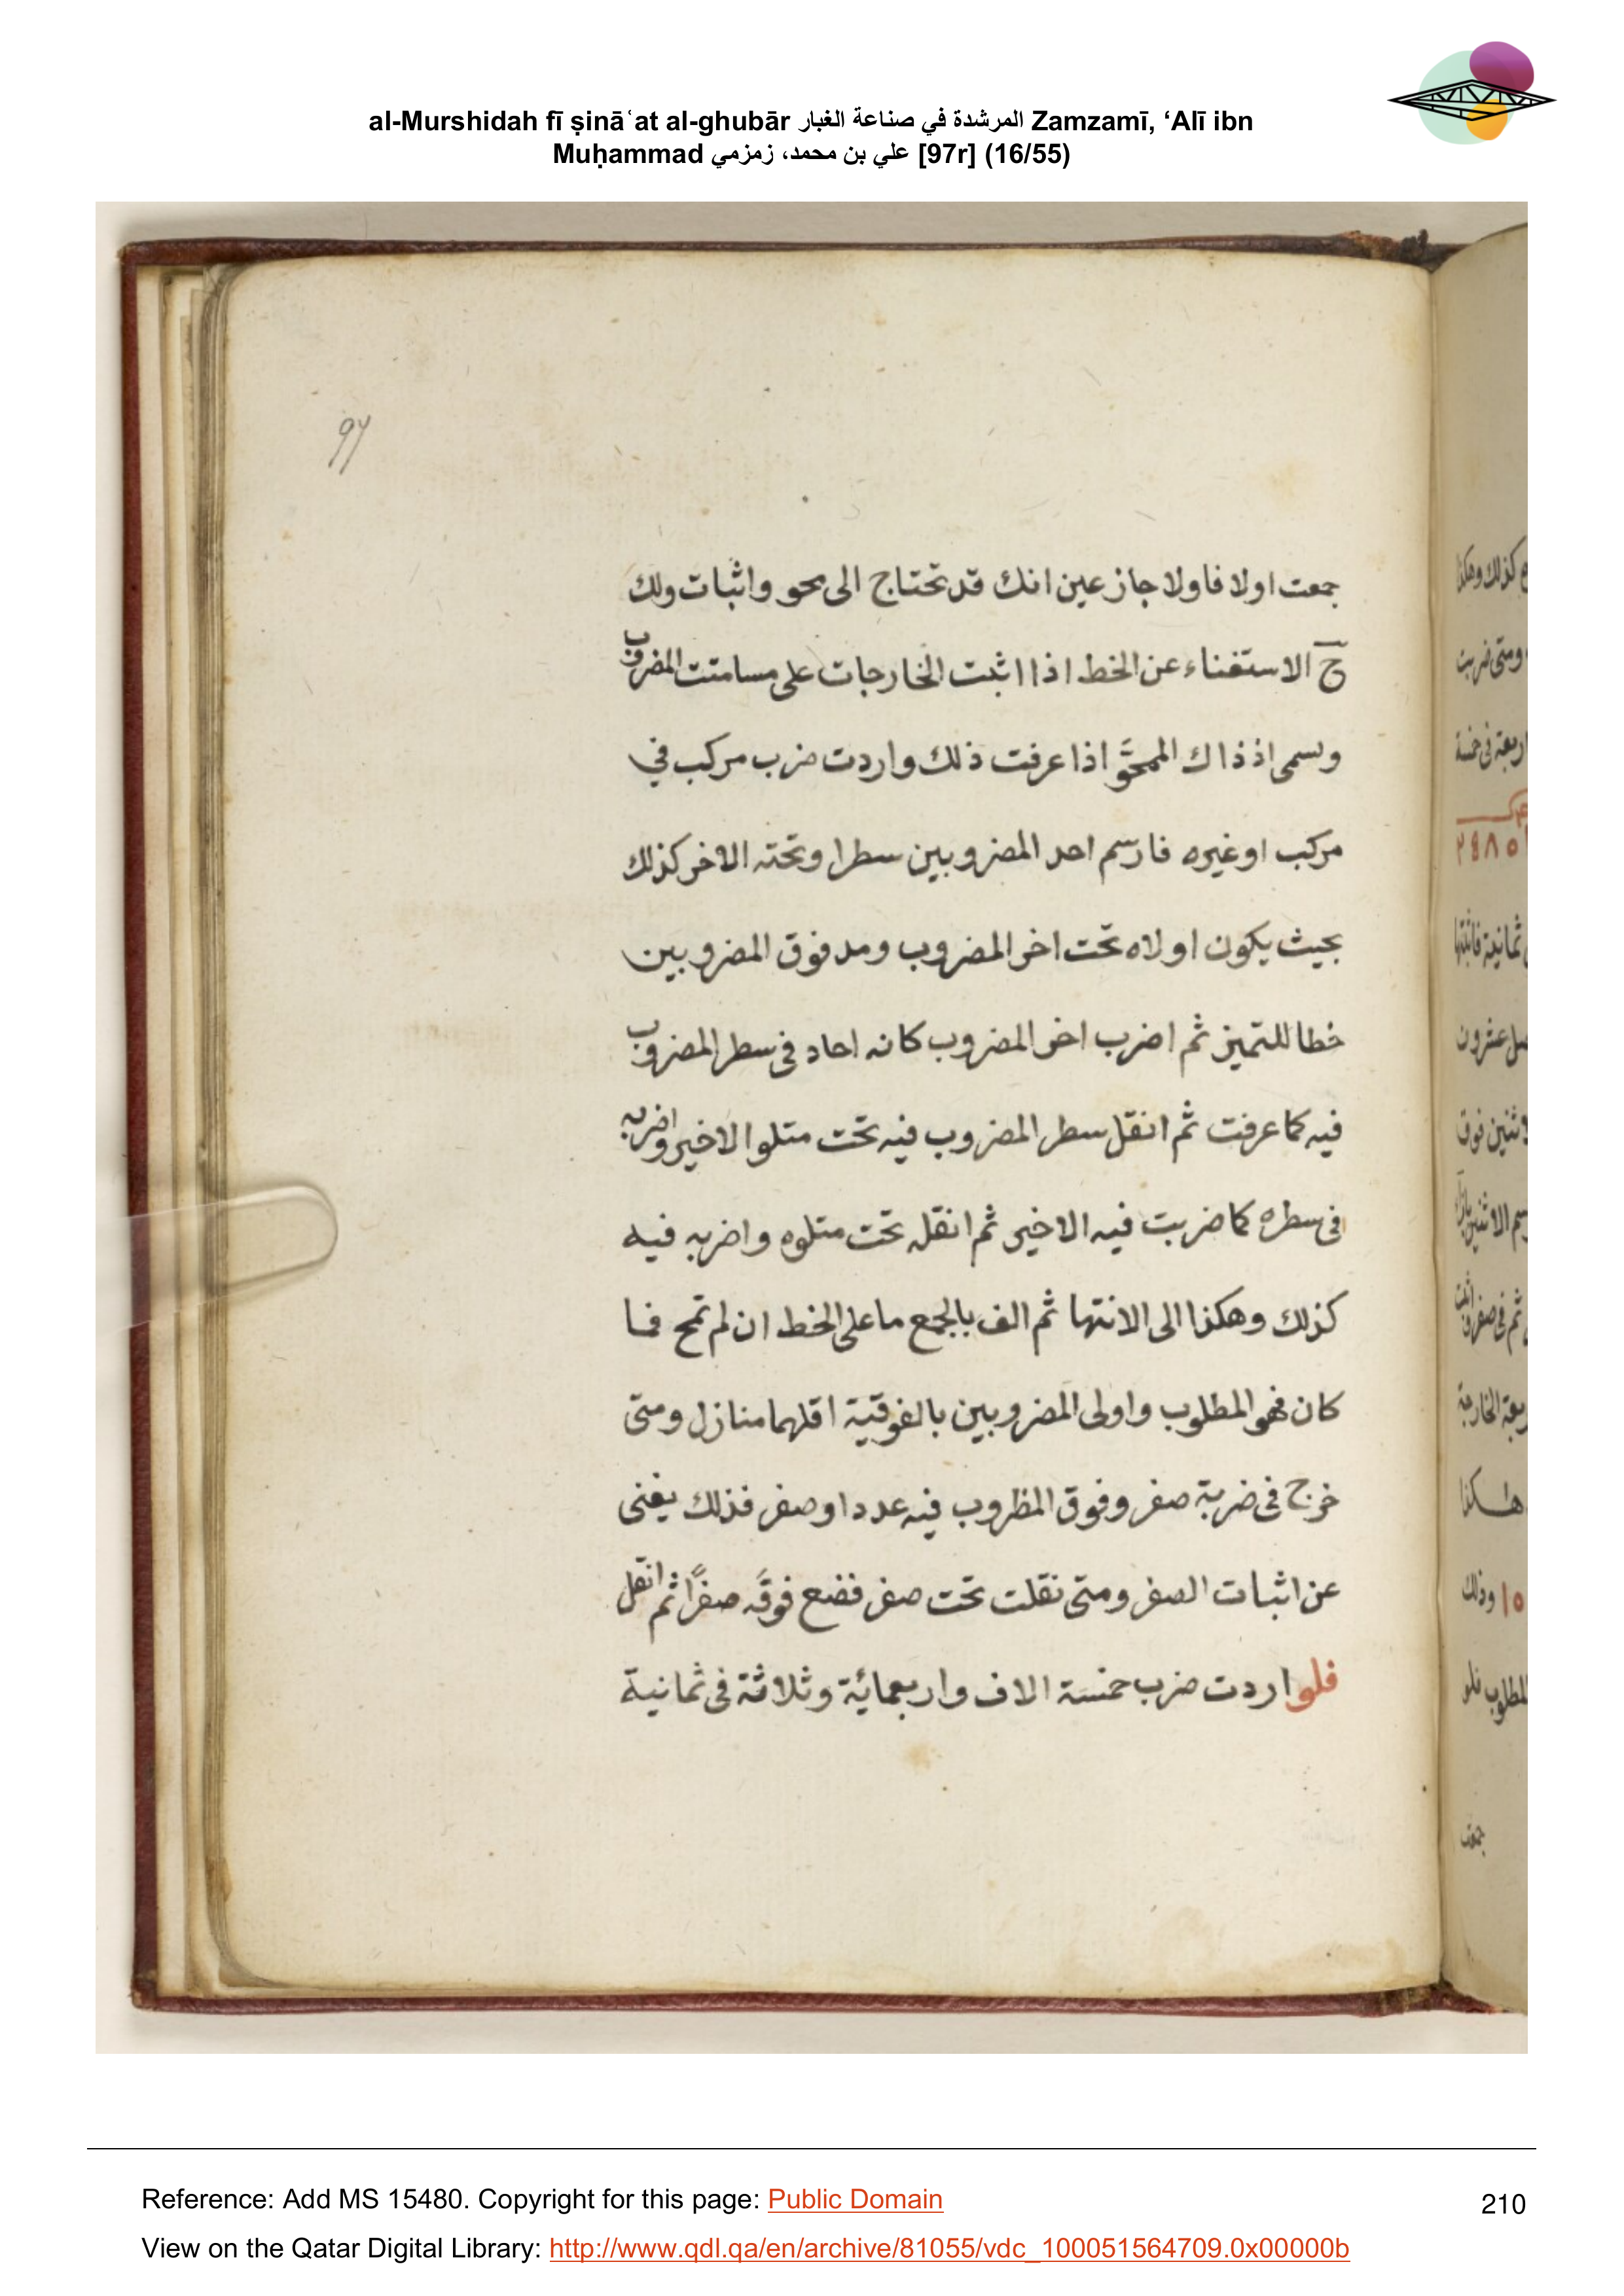 al-Murshidah fī ṣināʿat al-ghubār المرشدة في صناعة الغبار Zamzamī, ‘Alī ibn
Muḥammad علي بن محمد، زمزمي [97r] (16/55)
97
جمعت اولا فاولا جاز عين انك قد تحتاج الى محو واثبات ولك
ح الاستغناء عن الخط اذا اثبت الخارجات على مسامتت المضروب
وسمى اذ ذاك الممحو اذا عرفت ذلك واردت ضرب مركب في
مركب او غيره فارسم احد المضروبين سطرا وتحته الاخر كذلك
بحيث يكون اولاه تحت اخر المضروب ومد فوق المضروبين
خطا للتميز ثم اضرب اخر المضروب كانه احاد فى سطر المضروب
فيه كما عرفت ثم انقل سطر المضروب فيه تحت متلو الاخير واضربه
فى سطره كما ضربت فيه الاخير ثم انقله تحت متلوه واضربه فيه
كذلك وهكذا الى الانتها ثم الف بالجمع ما على الخط ان لم تمح فما
كان فهو المطلوب واولى المضروبين بالفوقية اقلهما منازل ومتى
خرج فى ضربة صفر وفوق المظروب فيه عدد او صفر فذلك يغنى
عن اثبات الصفر ومتى نقلت تحت صفر فضع فوقه صفرًا ثم انقل
فلو اردت ضرب خمسة الاف واربعمائة وثلاثة فى ثمانية
كذلك وهكذا
ومتى ضربت
اربعة فى خمسة
٢٤٨٥
ثمانية فاثبتها
عشرون
فوق
ثم فى صفر
الخارجة
هكذا
١٥ وذلك
المطلوب فلو
جمعت
Reference: Add MS 15480. Copyright for this page: Public Domain
210
View on the Qatar Digital Library: http://www.qdl.qa/en/archive/81055/vdc_100051564709.0x00000b